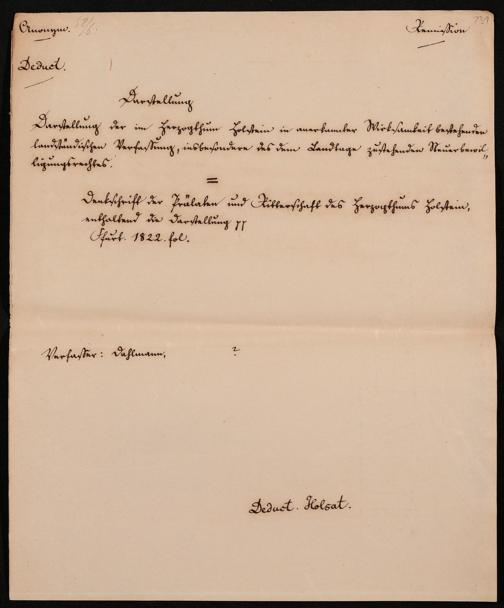 Anonym.
Remission
Deduct.
Darstellung
Darstellung der im Herzogthum Holstein in anerkannter Wirksamkeit bestehenden
landständischen Verfassung, insbesondere des dem Landtage zustehenden Steuerbewil„
ligungsrechtes.
=
Denkschrift der Prälaten und Ritterschaft des Herzogthums Holstein,
enthaltend die Darstellung pp
Ffurt. 1822. fol.
Verfasser: Dahlmann. ?
Deduct. Holsat.